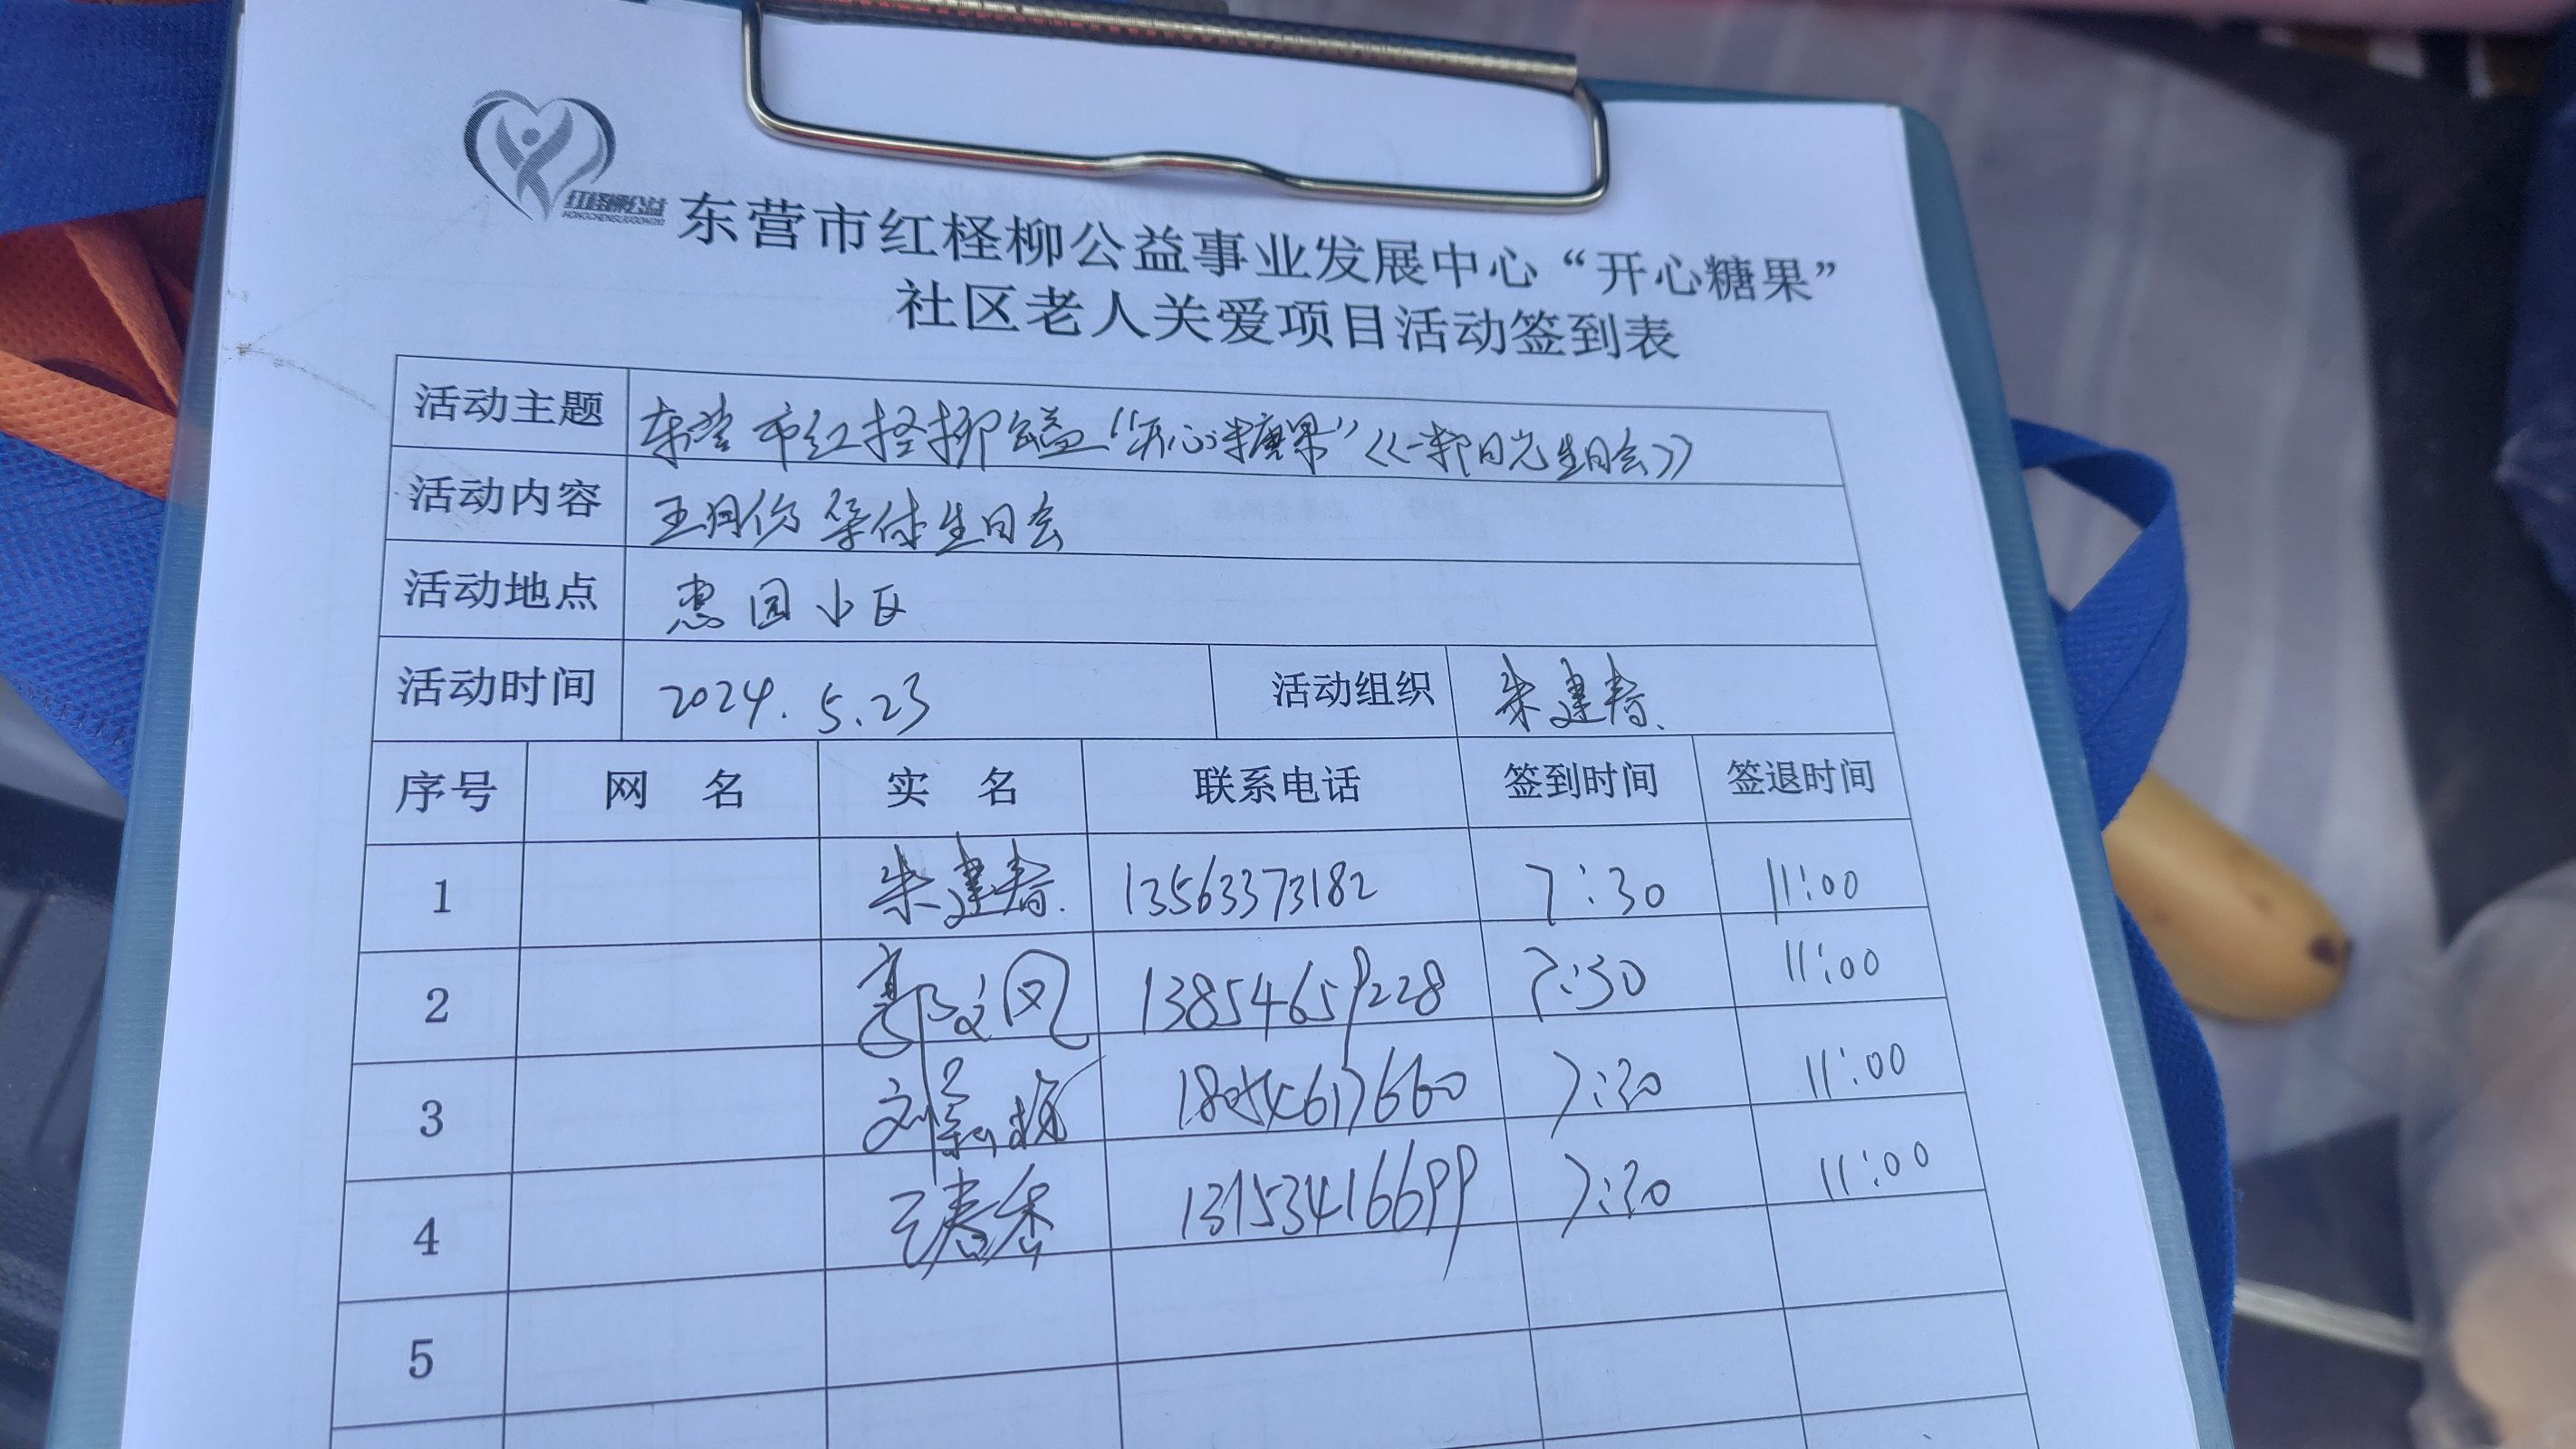 红柽柳公益
HONGCHENGLIUGONGYI
东营市红柽柳公益事业发展中心“开心糖果”
社区老人关爱项目活动签到表
活动主题 东营市红柽柳公益“开心糖果”《一都日光生日会》
活动内容 五月份集体生日会
活动地点 惠园小区
活动时间 2024.5.23 活动组织 朱建春
序号 网 名 实 名 联系电话 签到时间 签退时间
1 朱建春 13563373182 7:30 11:00
2 郭文凤 13854659228 7:30 11:00
3 7:30 11:00
4 王春香 13153416699 7:30 11:00
5